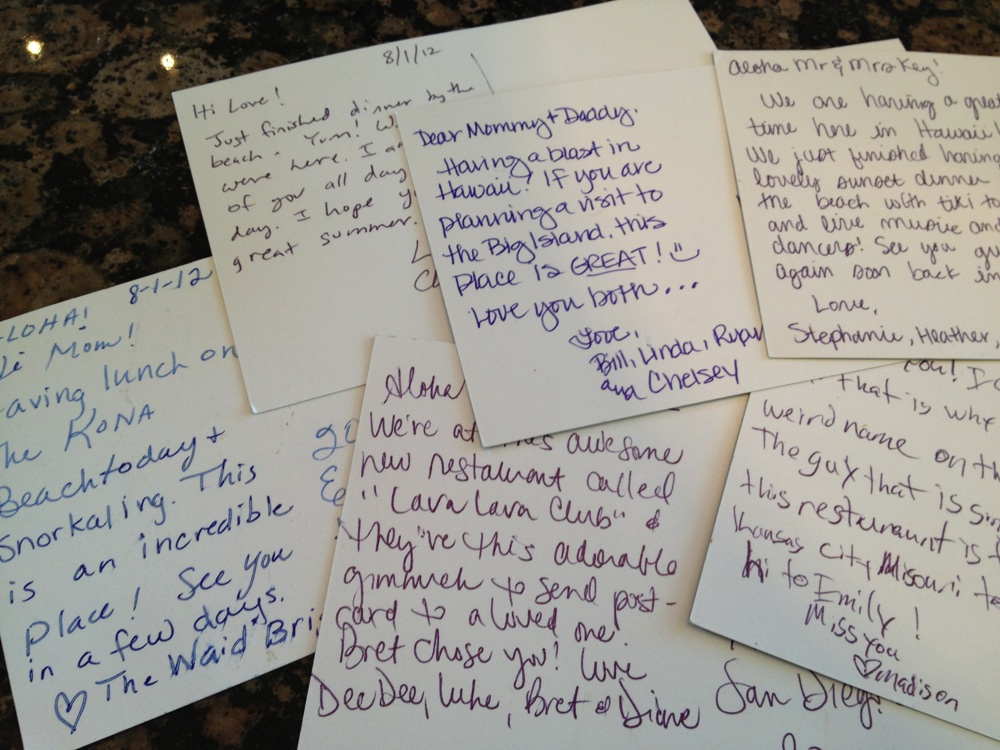 8/1/12
Hi Love!
Just finished dinner by the
beach - Yum!
were here. I
of you all day
day. I hope
great summer.
Dear Mommy + Daddy.
Having a blast in
Hawaii! If you are
planning a visit to
the Big Island. this
place is GREAT!
Love you both...
Love,
Bill, Linda, Ryan
and Chelsey
Aloha Mr & Mrs Key!
We are having a great
time here in Hawaii
We just finished having
lovely sunset dinner
the beach with tiki
and live music and
dancers! See you
again soon back in
Love,
Stephanie, Heather,
ALOHA! 8-1-12
Hi Mom!
Having lunch on
The KONA
Beach today +
Snorkaling. This
is an incredible
place! See you
in a few days.
♡ The Waid
Aloha
We're at this awesome
new restaurant called
"Lava Lava Club" &
they've this adorable
gimmick to send post-
card to a loved one
Bret chose you! Love
DeeDee, Luke, Bret & Diane
San Diego!
you! I
that is why
weird name on the
The guy that is
this restaraunt is
Kansas City Missouri
hi to Emily!
Miss you
♡Madison